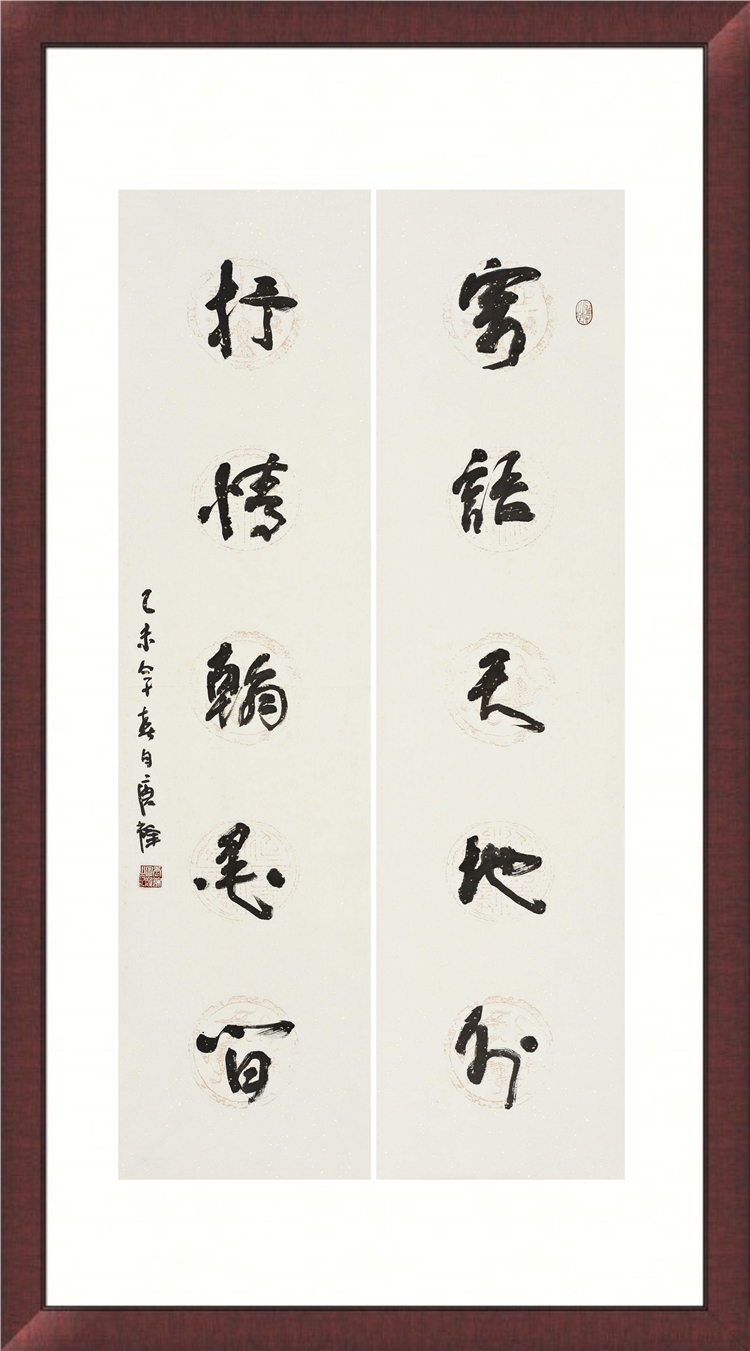 寄語天地外
抒情翰墨間
乙未年春日唐